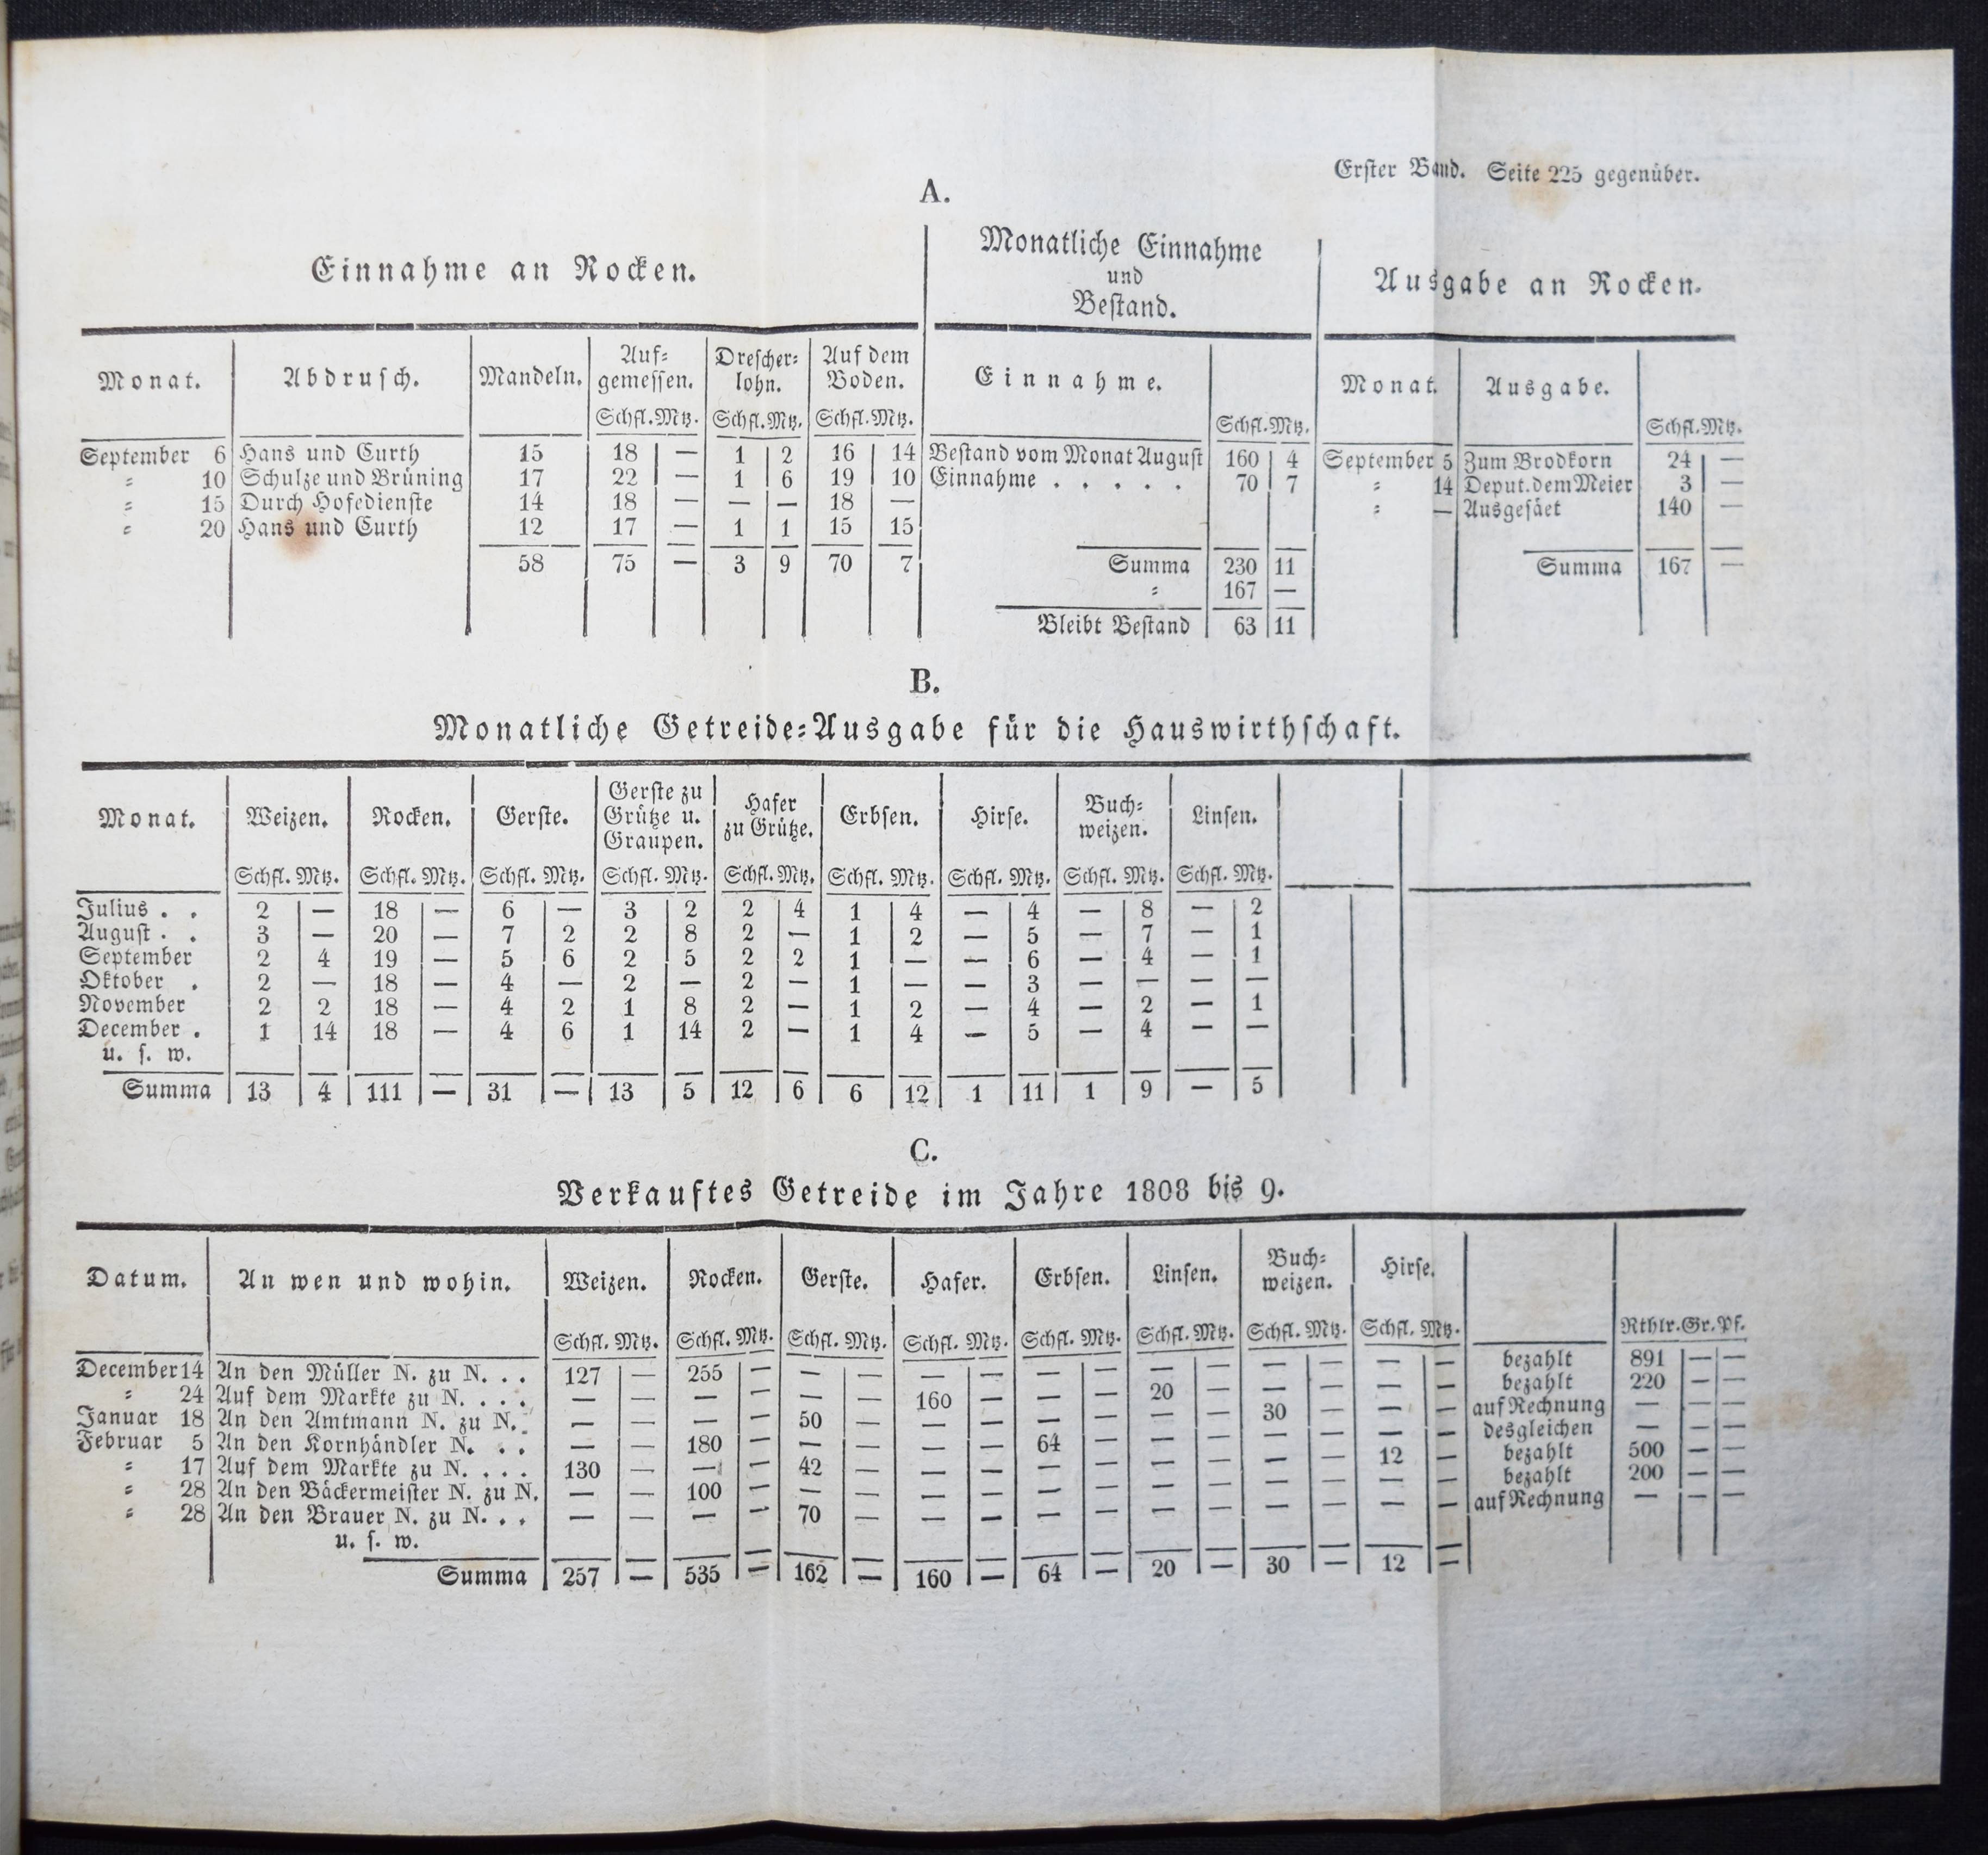 Erster Band. Seite 225 gegenüber.
A.
Einnahme an Rocken.
Monatliche Einnahme
und
Bestand.
Ausgabe an Rocken.
Monat. Abdrusch. Mandeln. Auf- gemessen. Drescher- lohn. Auf dem Boden. Einnahme. Monat. Ausgabe.
Schfl. Mtz. Schfl. Mtz. Schfl. Mtz. Schfl. Mtz. Schfl. Mtz.
September 6 Hans und Curth 15 18 — 1 2 16 14 Bestand vom Monat August 160 4 September 5 Zum Brodkorn 24 —
= 10 Schulze und Brüning 17 22 — 1 6 19 10 Einnahme . . . . . 70 7 = 14 Deput. dem Meier 3 —
= 15 Durch Hofedienste 14 18 — — — 18 — = — Ausgesäet 140 —
= 20 Hans und Curth 12 17 — 1 1 15 15
58 75 — 3 9 70 7 Summa 230 11 Summa 167 —
= 167 —
Bleibt Bestand 63 11
B.
Monatliche Getreide=Ausgabe für die Hauswirthschaft.
Monat. Weizen. Rocken. Gerste. Gerste zu Grütze u. Graupen. Hafer zu Grütze. Erbsen. Hirse. Buch- weizen. Linsen.
Schfl. Mtz. Schfl. Mtz. Schfl. Mtz. Schfl. Mtz. Schfl. Mtz. Schfl. Mtz. Schfl. Mtz. Schfl. Mtz. Schfl. Mtz.
Julius . . 2 — 18 — 6 — 3 2 2 4 1 4 — 4 — 8 — 2
August . . 3 — 20 — 7 2 2 8 2 — 1 2 — 5 — 7 — 1
September 2 4 19 — 5 6 2 5 2 2 1 — — 6 — 4 — 1
Oktober . 2 — 18 — 4 — 2 — 2 — 1 — — 3 — — — —
November 2 2 18 — 4 2 1 8 2 — 1 2 — 4 — 2 — 1
December . 1 14 18 — 4 6 1 14 2 — 1 4 — 5 — 4 — —
u. s. w.
Summa 13 4 111 — 31 — 13 5 12 6 6 12 1 11 1 9 — 5
C.
Verkauftes Getreide im Jahre 1808 bis 9.
Datum. An wen und wohin. Weizen. Rocken. Gerste. Hafer. Erbsen. Linsen. Buch- weizen. Hirse.
Schfl. Mtz. Schfl. Mtz. Schfl. Mtz. Schfl. Mtz. Schfl. Mtz. Schfl. Mtz. Schfl. Mtz. Schfl. Mtz. Rthlr. Gr. Pf.
December 14 An den Müller N. zu N. . . 127 — 255 — — — — — — — — — — — — — bezahlt 891 — —
= 24 Auf dem Markte zu N. . . . — — — — — — 160 — — — 20 — — — — — bezahlt 220 — —
Januar 18 An den Amtmann N. zu N. . — — — — 50 — — — — — — — 30 — — — auf Rechnung — — —
Februar 5 An den Kornhändler N. . . — — 180 — — — — — 64 — — — — — — — desgleichen — — —
= 17 Auf dem Markte zu N. . . . 130 — — — 42 — — — — — — — — — 12 — bezahlt 500 — —
= 28 An den Bäckermeister N. zu N. — — 100 — — — — — — — — — — — — — bezahlt 200 — —
= 28 An den Brauer N. zu N. . . — — — — 70 — — — — — — — — — — — auf Rechnung — — —
u. s. w.
Summa 257 — 535 — 162 — 160 — 64 — 20 — 30 — 12 —